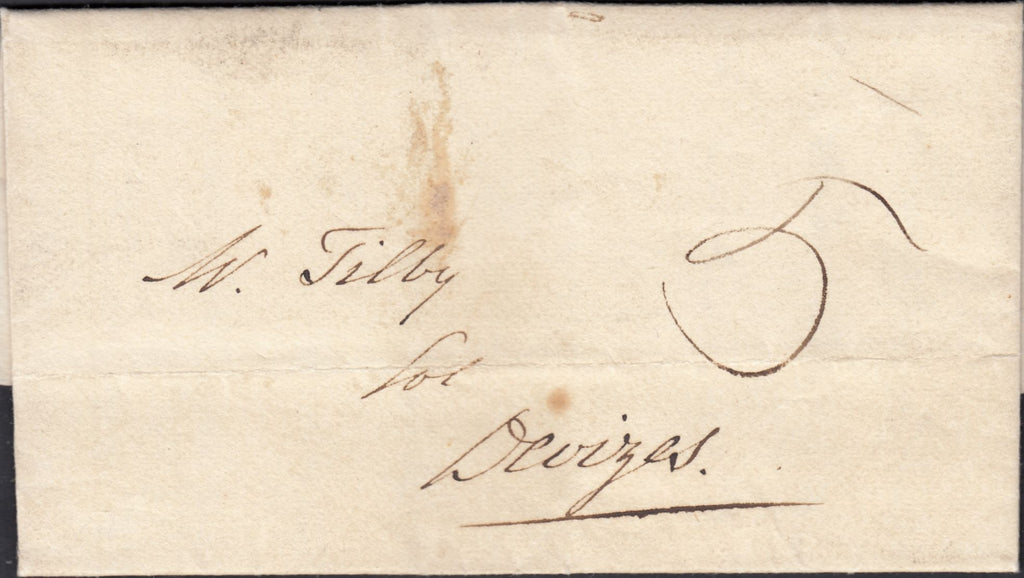 W. Tilby 5
Sol
Devizes.